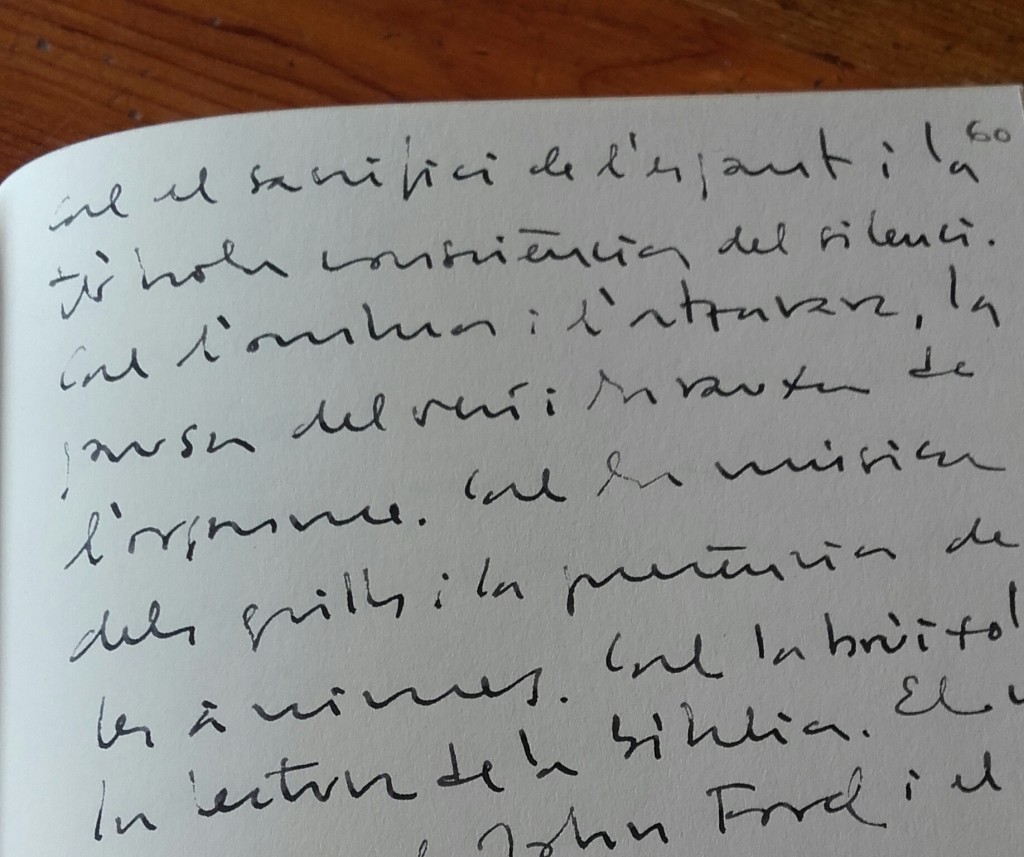 60
Cal el sacrifici de l'infant i la
consciència del silenci.
Cal l'ombra i l'atzavara, la
pausa del verí i la de
l'orgasme. Cal la música
dels grills i la presència de
les ànimes. Cal la brúixol
la lectura de la Bíblia. El
John Ford i el